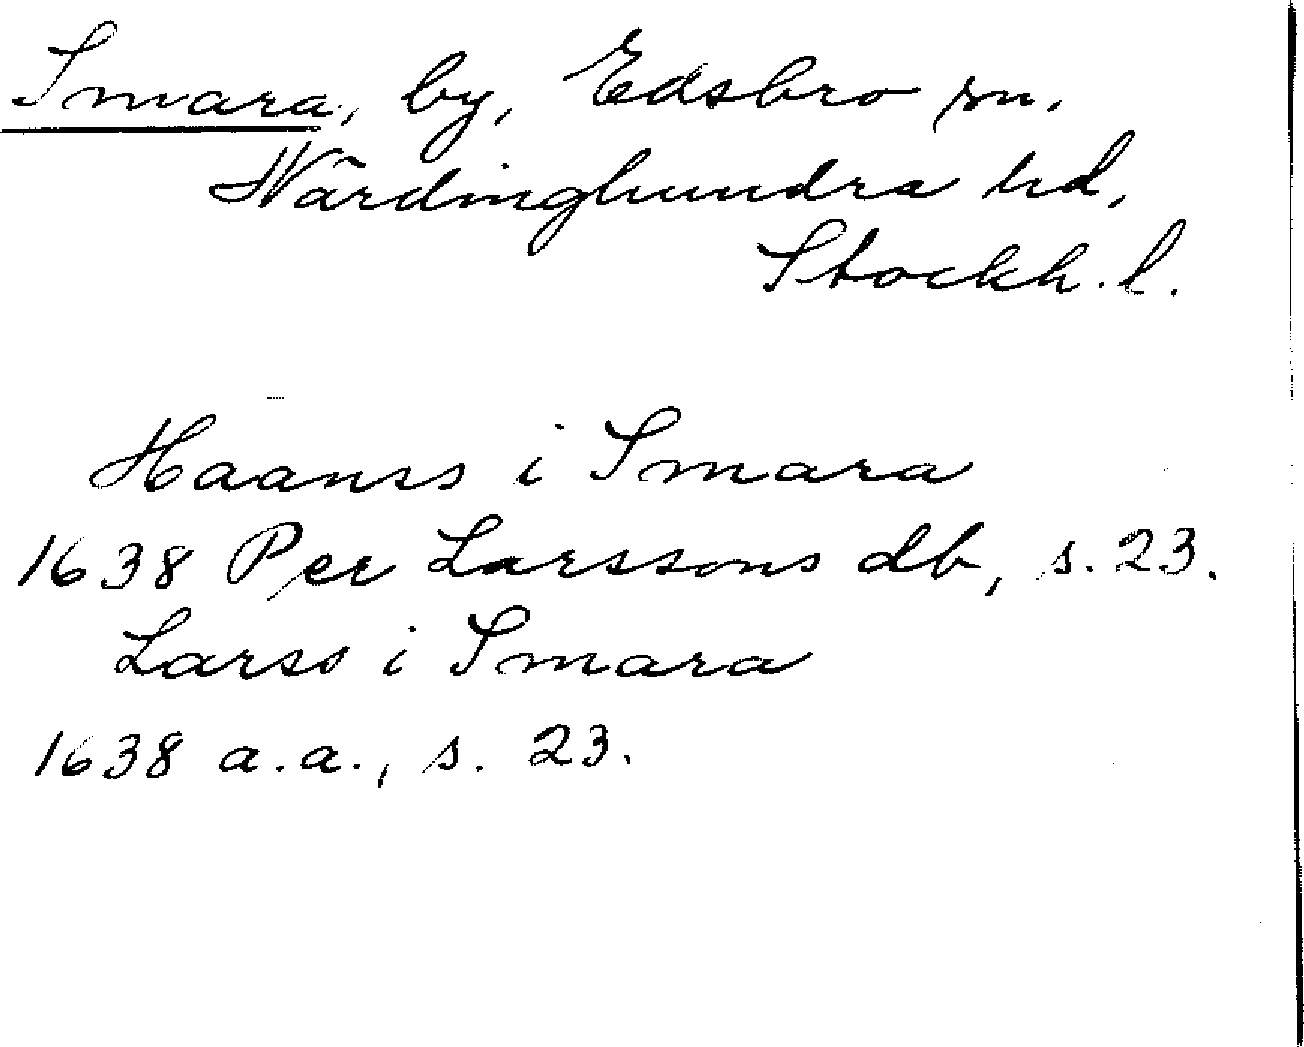 Smara, by, Edsbro sn.
Närdinghundra hd,
Stockh. l.
Haanss i Smara
1638 Per Larssons db, s. 23.
Larss i Smara
1638 a.a., s. 23.